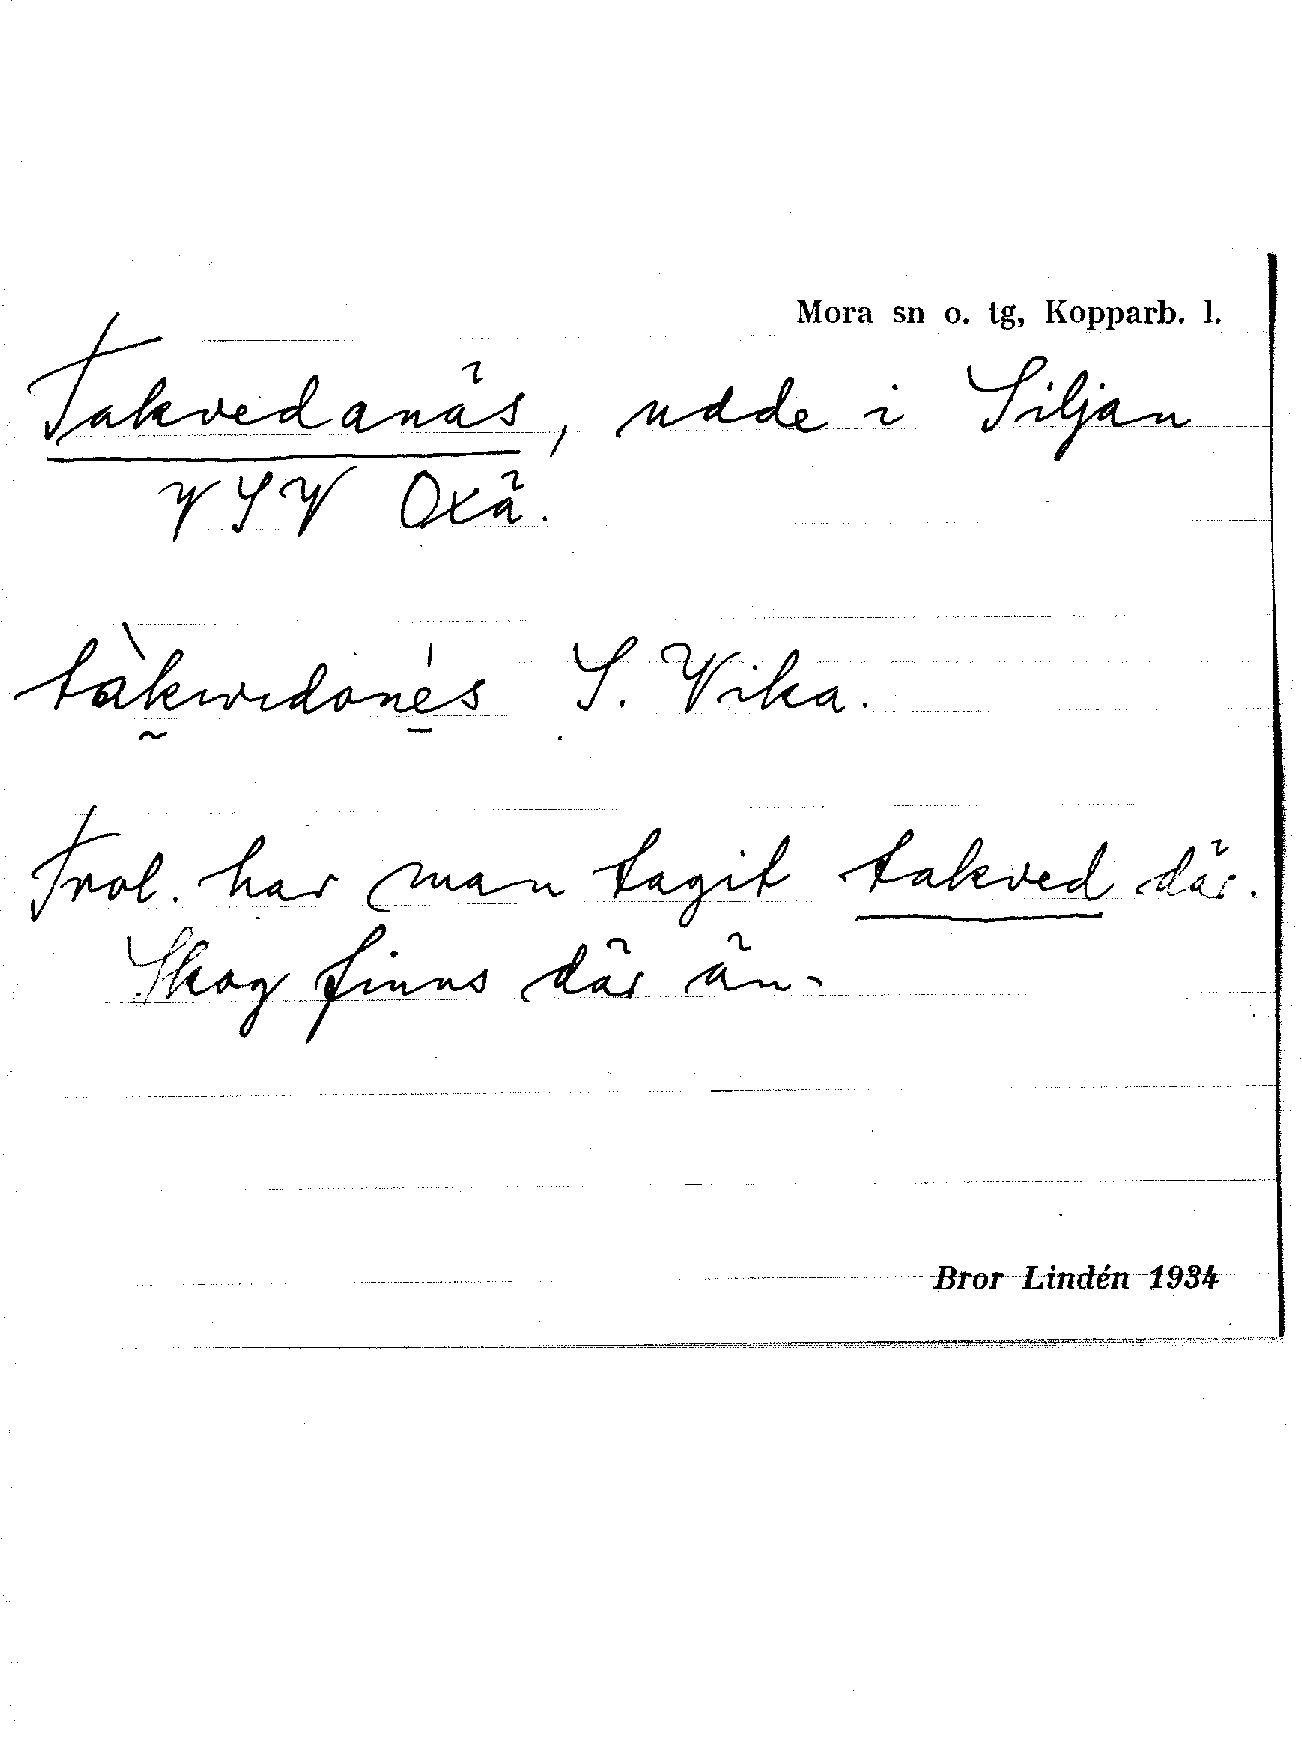 Mora sn o. tg, Kopparb. l.
Takvedanäs, udde i Siljan
VSV Oxä.
tàkwidanés S. Vika.
Trol. har man tagit takved där.
Skog finns där än-
Bror Lindén 1934